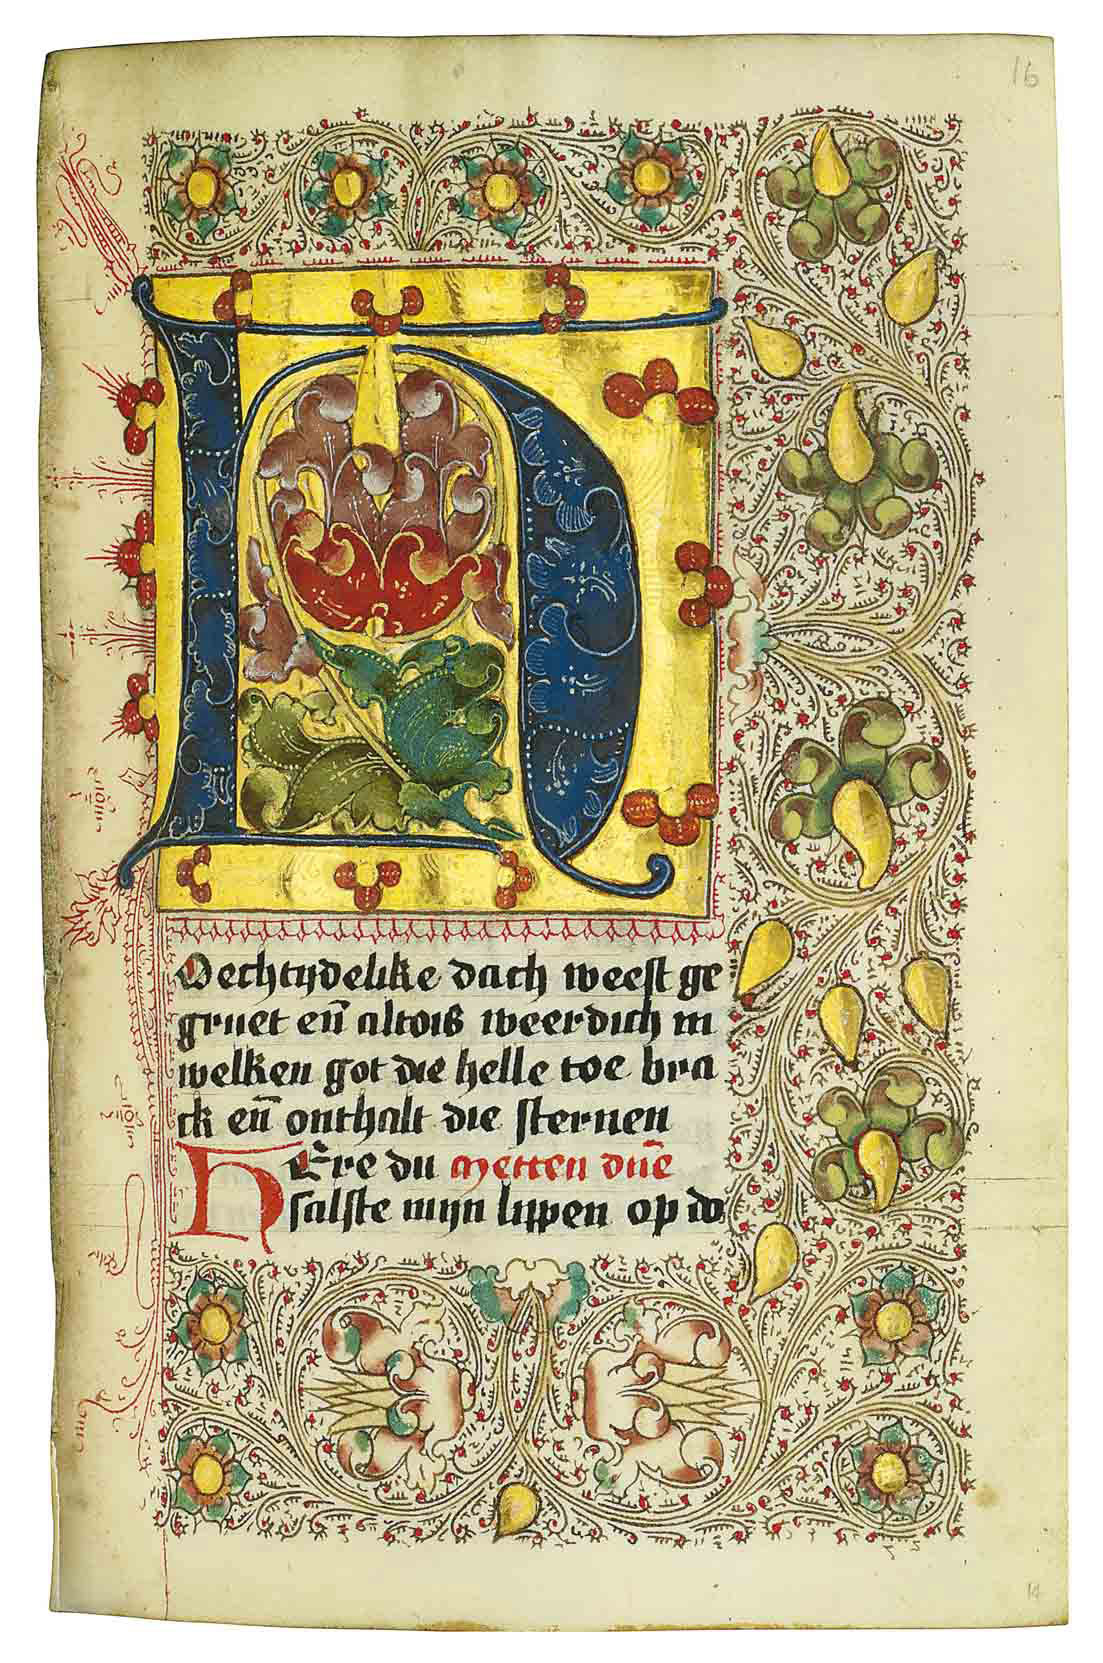 16
H
Oechtydelike dach weest ge
gruet en̄ altois weerdich in
welken got die helle toe bra
ck en̄ onthalt die sternen
HEre du metten dūe
salste mijn lippen op do
14